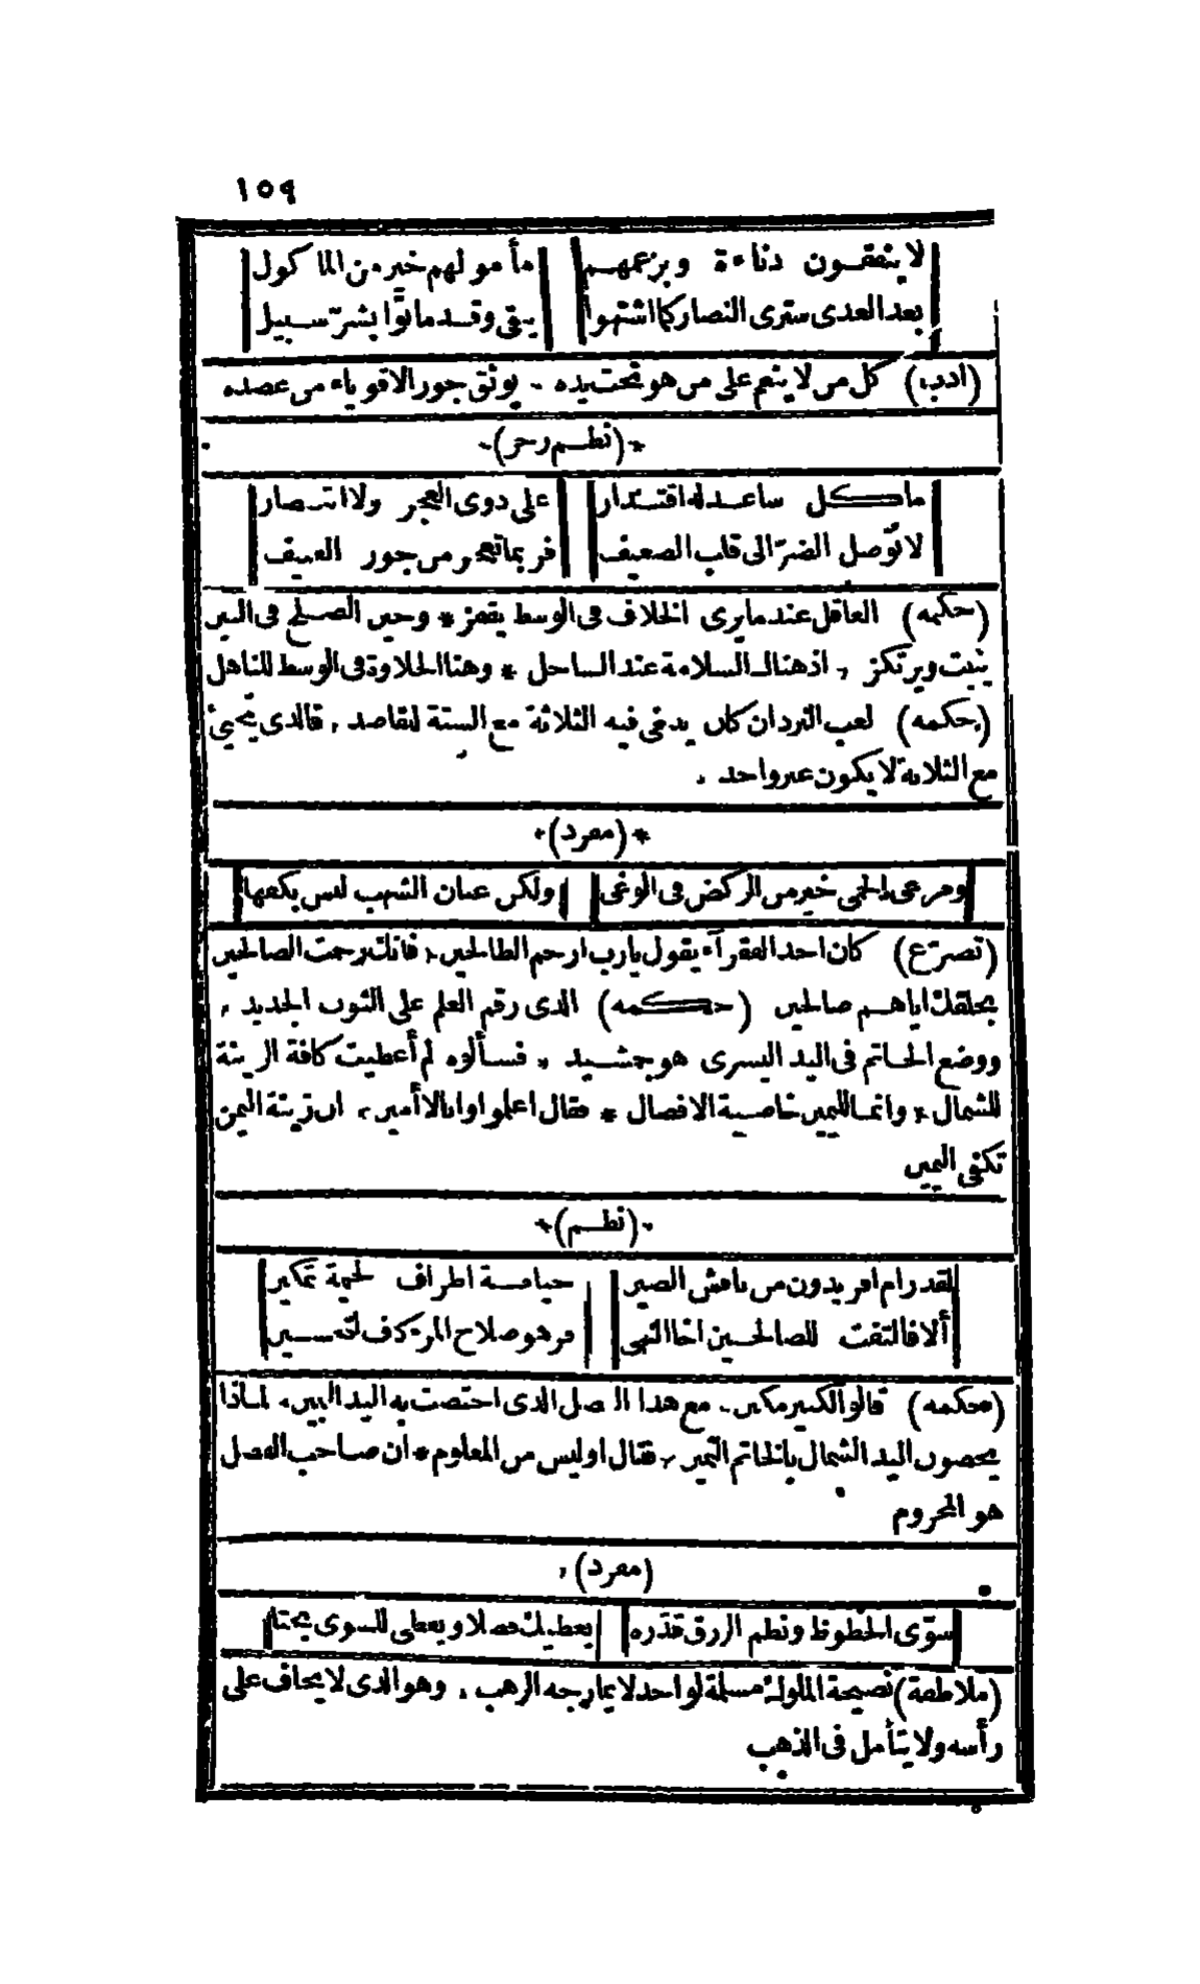 ١٥٩
لا ينفقون دناءة وبزعمهم مأمولهم خير من المأكول
بعد العدى سترى النضار كما اشتهوا يبقى وقد ماتوا بشرّ سبيل
(ادب) كل من لا ينعم على من هو تحت يده * يوثق جور الاقوياء من عضده
*(نظم رجز)*
ما كل ساعد له اقتدار على ذوى العجز ولا انتصار
لا توصل الضرّ الى قلب الضعيف فربما تعجز من جور العنيف
(حكمه) العاقل عند ما يرى الخلاف فى الوسط يقفز * وحين الصلح فى البين
يثبت ويرتكز * اذ هناك السلامة عند الساحل * وهنا الحلاوة فى الوسط للناهل
(حكمه) لعب النرد ان كان ينبغى فيه الثلاثة مع الستة لمقاصد * فالذى يجيئ
مع الثلاثة لا يكون غير واحد *
*(مفرد)*
ومرعى الحمى خير من الركض فى الوغى ولكن عنان الشهب ليس بكفها
(تضرّع) كان احد الفقرآء يقول يارب ارحم الطالحين * فانك رحمت الصالحين
بخلقك اياهم صالحين (حكمه) الذى رقم العلم على الثوب الجديد *
ووضع الخاتم فى اليد اليسرى هو جمشيد * فسألوه لم أعطيت كافة الزينة
للشمال * وانما لليمين خاصية الافضال * فقال اعلموا وانا الأمين * ان زينة اليمن
تكفى اليمين
*(نظم)*
لقد رام افريدون من نافش الصين خيامة اطراف لخيمة تمكين
ألا فالتفت للصالحين اخا النهى فرهو صلاح المرء كاف لتحسين
(حكمه) قالوا لكبير مكين * مع هذا الفضل الذى اختصت به اليد اليمين * لماذا
يخصون اليد الشمال بالخاتم الثمين * فقال اوليس من المعلوم * ان صاحب الفضل
هو المحروم
(مفرد) *
سوّى الحظوظ ونظم الرزق قدّره يعطيك فضلا ويعطى للسوى بختا
(ملاطفة) نصيحة الملوك مسلمة لواحد لا يمازجه الرهب * وهو الذى لا يخاف على
رأسه ولا يتأمل فى الذهب